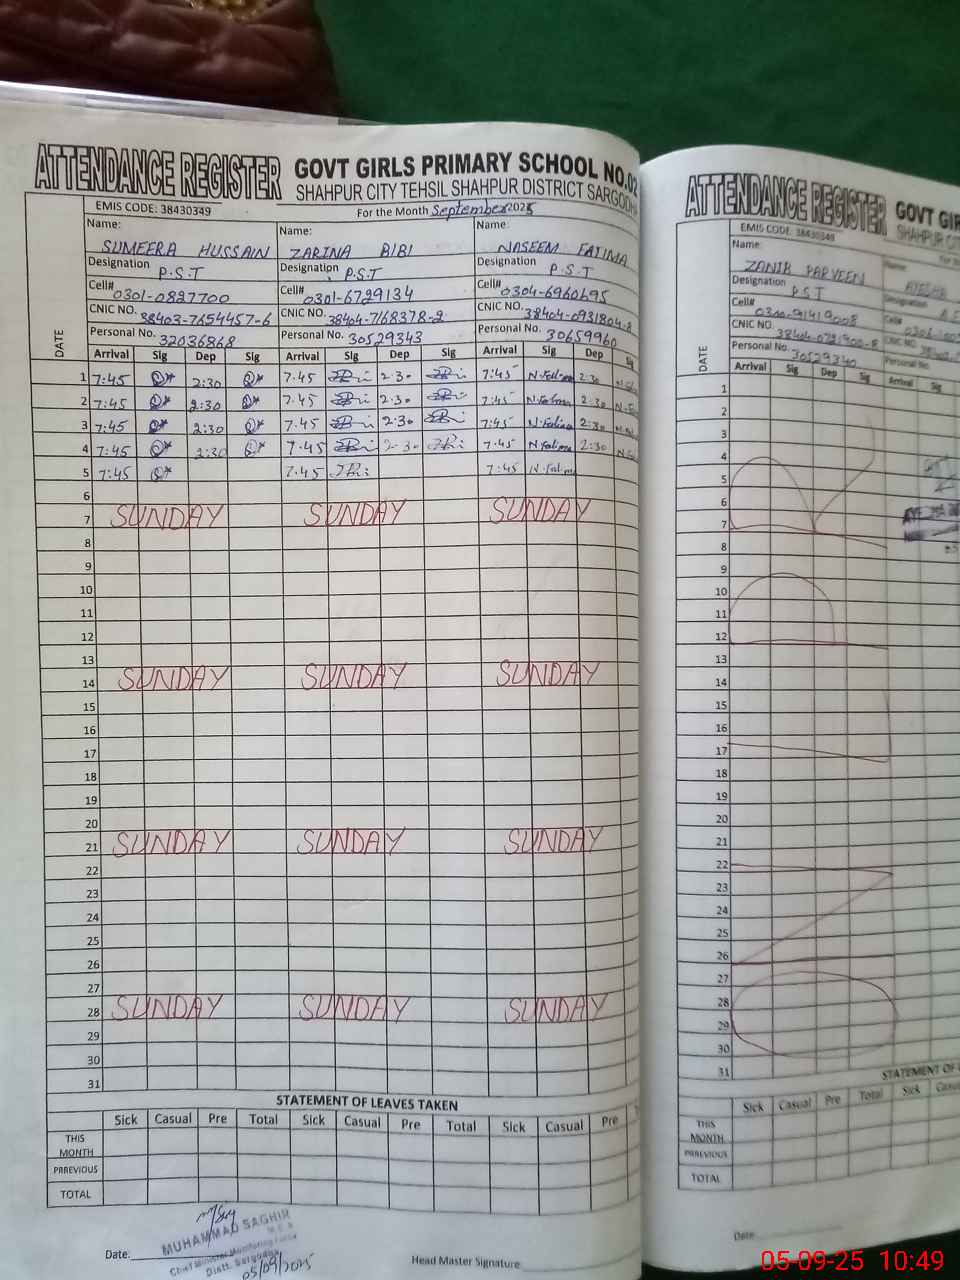 ATTENDANCE REGISTER GOVT GIRLS PRIMARY SCHOOL NO.02
SHAHPUR CITY TEHSIL SHAHPUR DISTRICT SARGODHA
EMIS CODE: 38430349 For the Month September 2025
Name: Name: Name:
SUMEERA HUSSAIN ZARINA BIBI NASEEM FATIMA
Designation P.S.T Designation P.S.T Designation P.S.T
Cell# 0301-0827700 Cell# 0301-6729134 Cell# 0304-6960695
CNIC NO. 38403-7654457-6 CNIC NO. 38404-7168378-2 CNIC NO. 38404-0931804-8
Personal No. 32036868 Personal No. 30529343 Personal No. 30659960
DATE Arrival Sig Dep Sig Arrival Sig Dep Sig Arrival Sig Dep Sig
1 7:45 2:30 7.45 2.30 7:45 N.Fatima 2:30
2 7:45 2:30 7.45 2.30 7:45 N.Fatima 2:30
3 7:45 2:30 7.45 2.30 7:45 N.Fatima 2:30
4 7:45 2:30 7.45 2.30 7.45 N.Fatima 2:30
5 7:45 7.45 7:45 N.Fatima
6
7 SUNDAY SUNDAY SUNDAY
8
9
10
11
12
13
14 SUNDAY SUNDAY SUNDAY
15
16
17
18
19
20
21 SUNDAY SUNDAY SUNDAY
22
23
24
25
26
27
28 SUNDAY SUNDAY SUNDAY
29
30
31
STATEMENT OF LEAVES TAKEN
Sick Casual Pre Total Sick Casual Pre Total Sick Casual Pre
THIS MONTH
PRREVIOUS
TOTAL
MUHAMMAD SAGHIR
Chief Minister Monitoring Force
Distt. Sargodha
Date:
05/09/2025
Head Master Signature
ATTENDANCE REGISTER GOVT GIR
SHAHPUR C
EMIS CODE: 38430349
Name: Name:
ZANIB PARVEEN
Designation P.S.T Designation
Cell# Cell#
CNIC NO. CNIC NO.
Personal No. 30529340 Personal No.
DATE Arrival Sig Dep Sig Arrival Sig
1
2
3
4
5
6
7
8
9
10
11
12
13
14
15
16
17
18
19
20
21
22
23
24
25
26
27
28
29
30
31
STATEMENT OF
Sick Casual Pre Total Sick
THIS MONTH
PRREVIOUS
TOTAL
Date
05-09-25 10:49